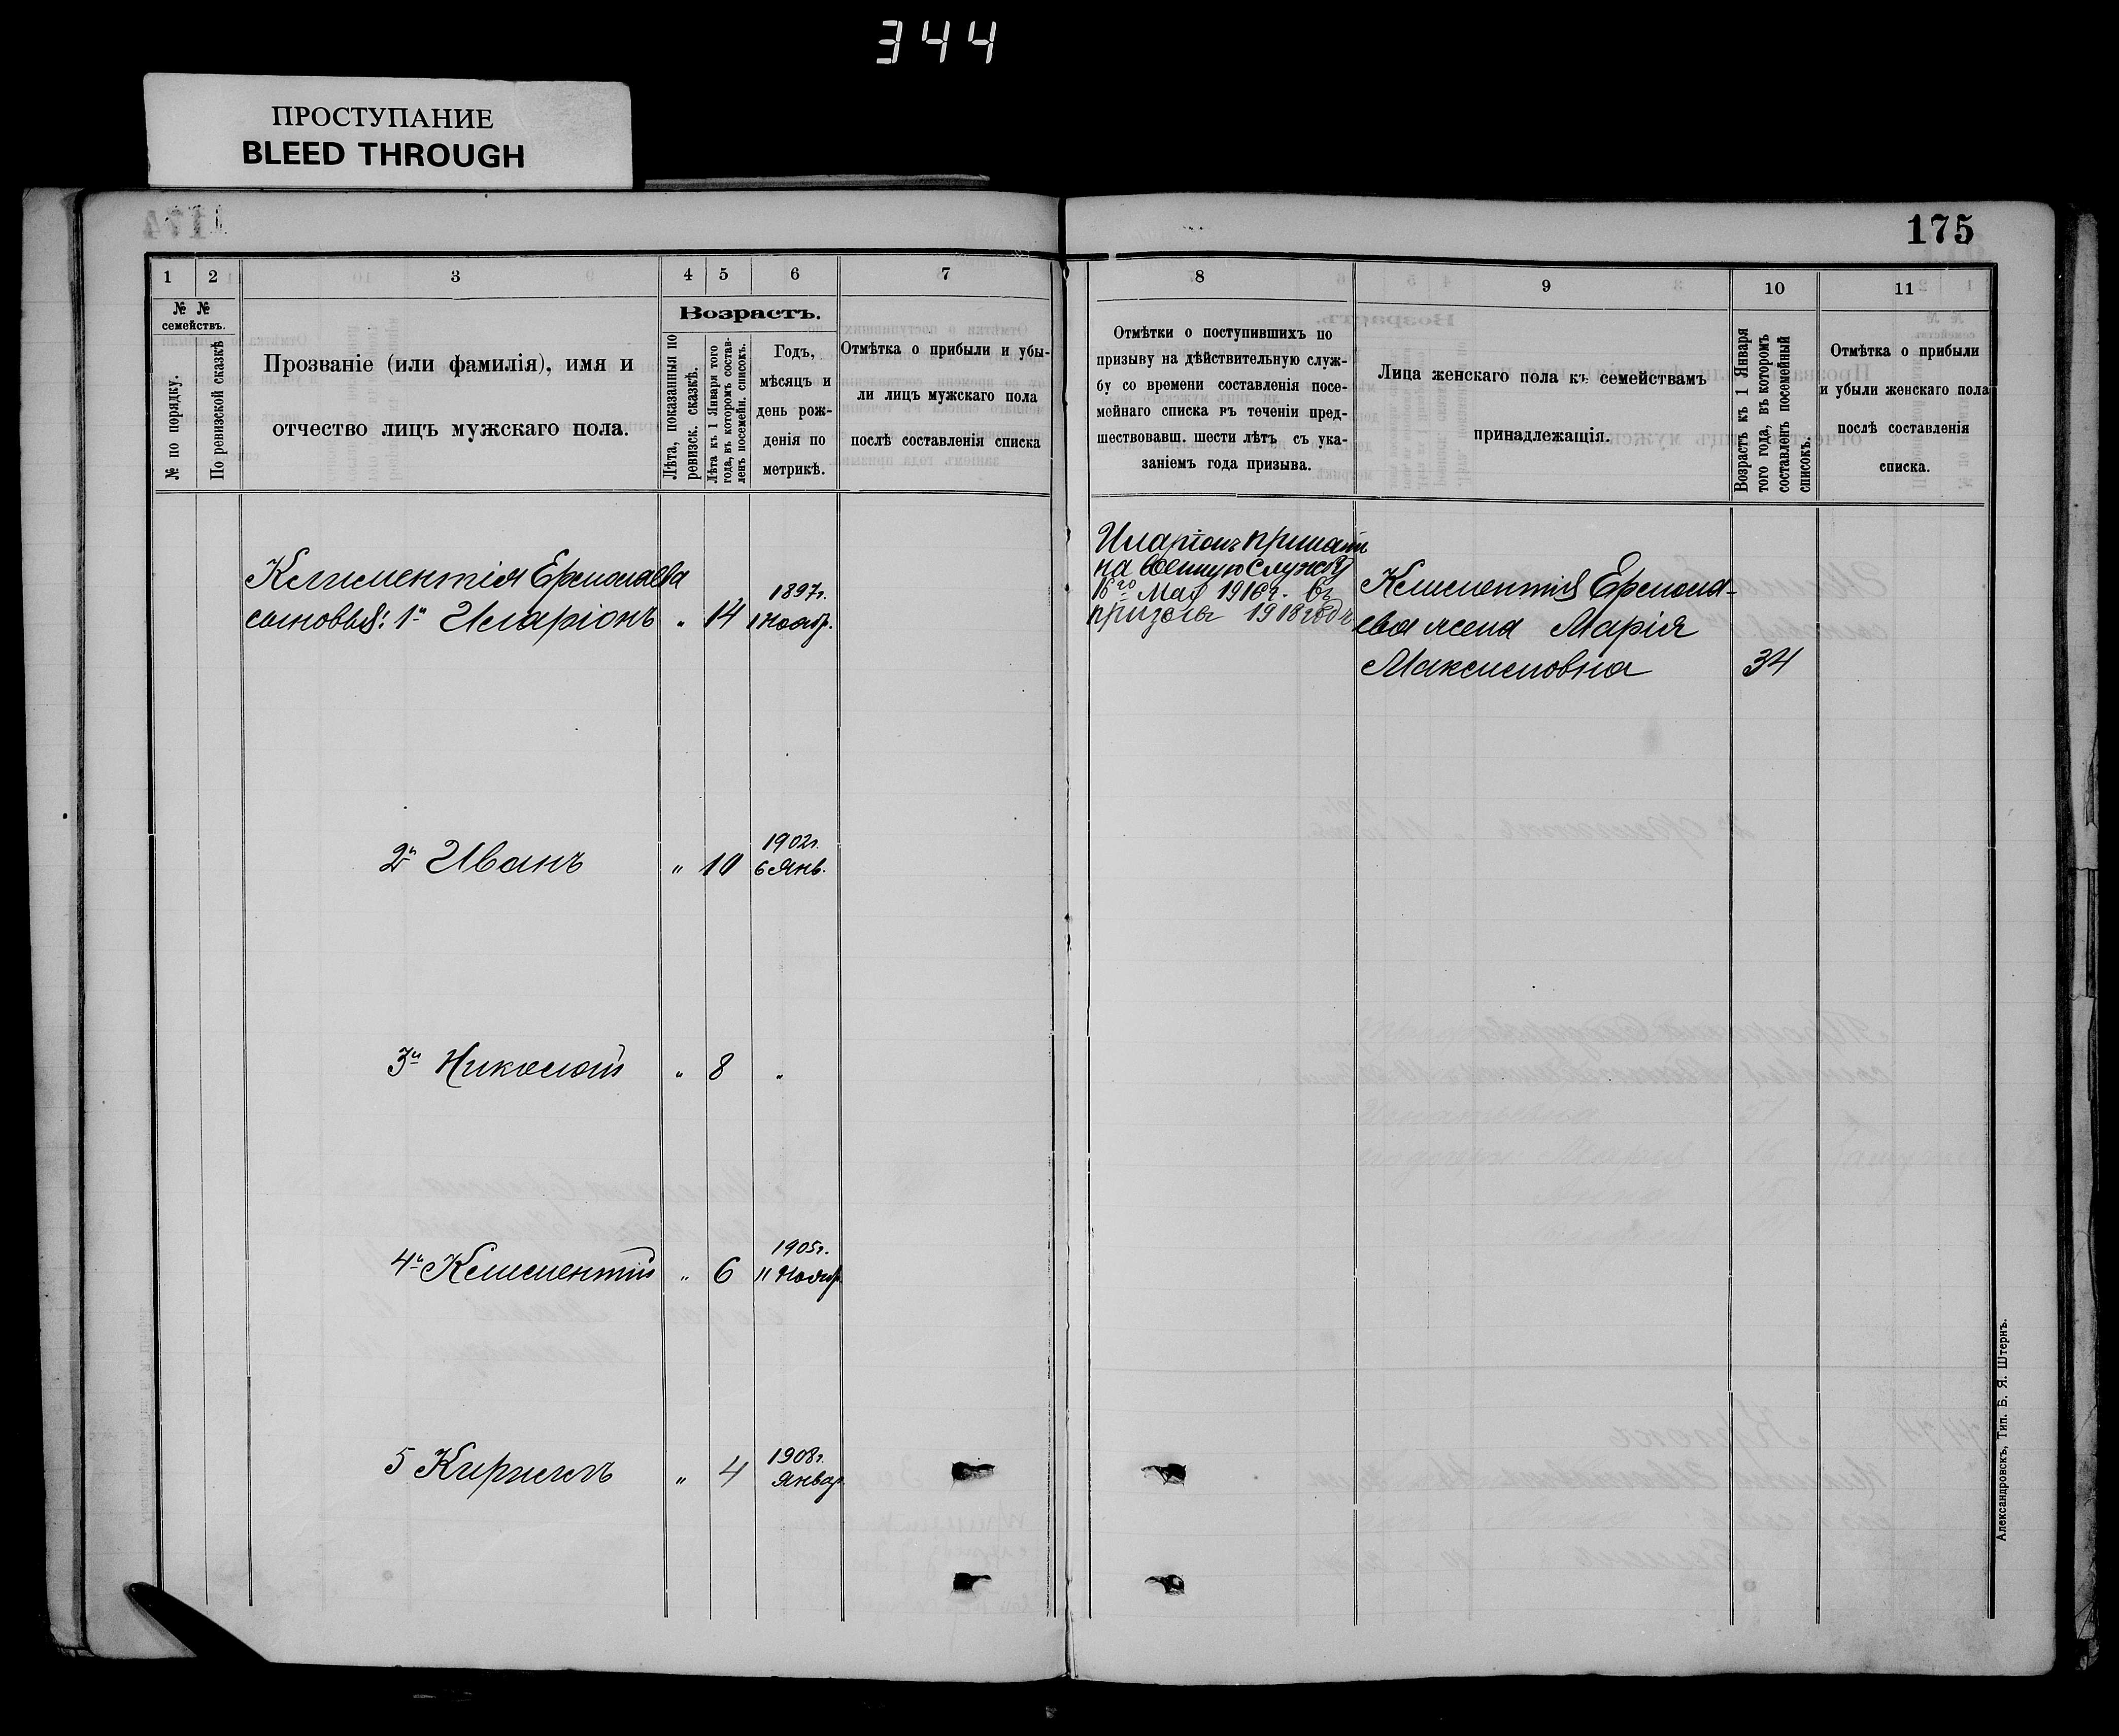 344
ПРОСТУПАНИЕ
BLEED THROUGH
175
1 2 3 4 5 6 7
№ №
семействъ.
№ по порядку.
По ревизской сказкѣ
Прозваніе (или фамилія), имя и
отчество лицъ мужскаго пола.
Возрастъ.
Лѣта, показанныя по
ревизск. сказкѣ.
Лѣта къ 1 Января того
года, въ которомъ состав-
ленъ посемейн. списокъ.
Годъ,
мѣсяцъ и
день рож-
денія по
метрикѣ.
Отмѣтка о прибыли и убы-
ли лицъ мужскаго пола
послѣ составленія списка
Климентія Ермолаева
сыновья: 1й Иларіонъ " 14 1897г. 1 Ноябр.
2й Иванъ " 10 1902г. 6 Янв.
3й Николай " 8 "
4й Климентій " 6 1905г. 11 Ноябр.
5 Кириллъ " 4 1908г. Январ.
8 9 10 11
Отмѣтки о поступившихъ по
призыву на дѣйствительную служ-
бу со времени составленія посе-
мейнаго списка въ теченіи пред-
шествовавш. шести лѣтъ съ ука-
заніемъ года призыва.
Лица женскаго пола къ семействамъ
принадлежащія.
Возрастъ къ 1 Января
того года, въ которомъ
составленъ посемейный
списокъ.
Отмѣтка о прибыли
и убыли женскаго пола
послѣ составленія
списка.
Иларіонъ принятъ
на военную службу
16го Мая 1916г. въ
призывъ 1918 года
Климентія Ермола-
ева жена Марія
Максимовна 34
Александровскъ, Тип. Б. Я. Штернъ.